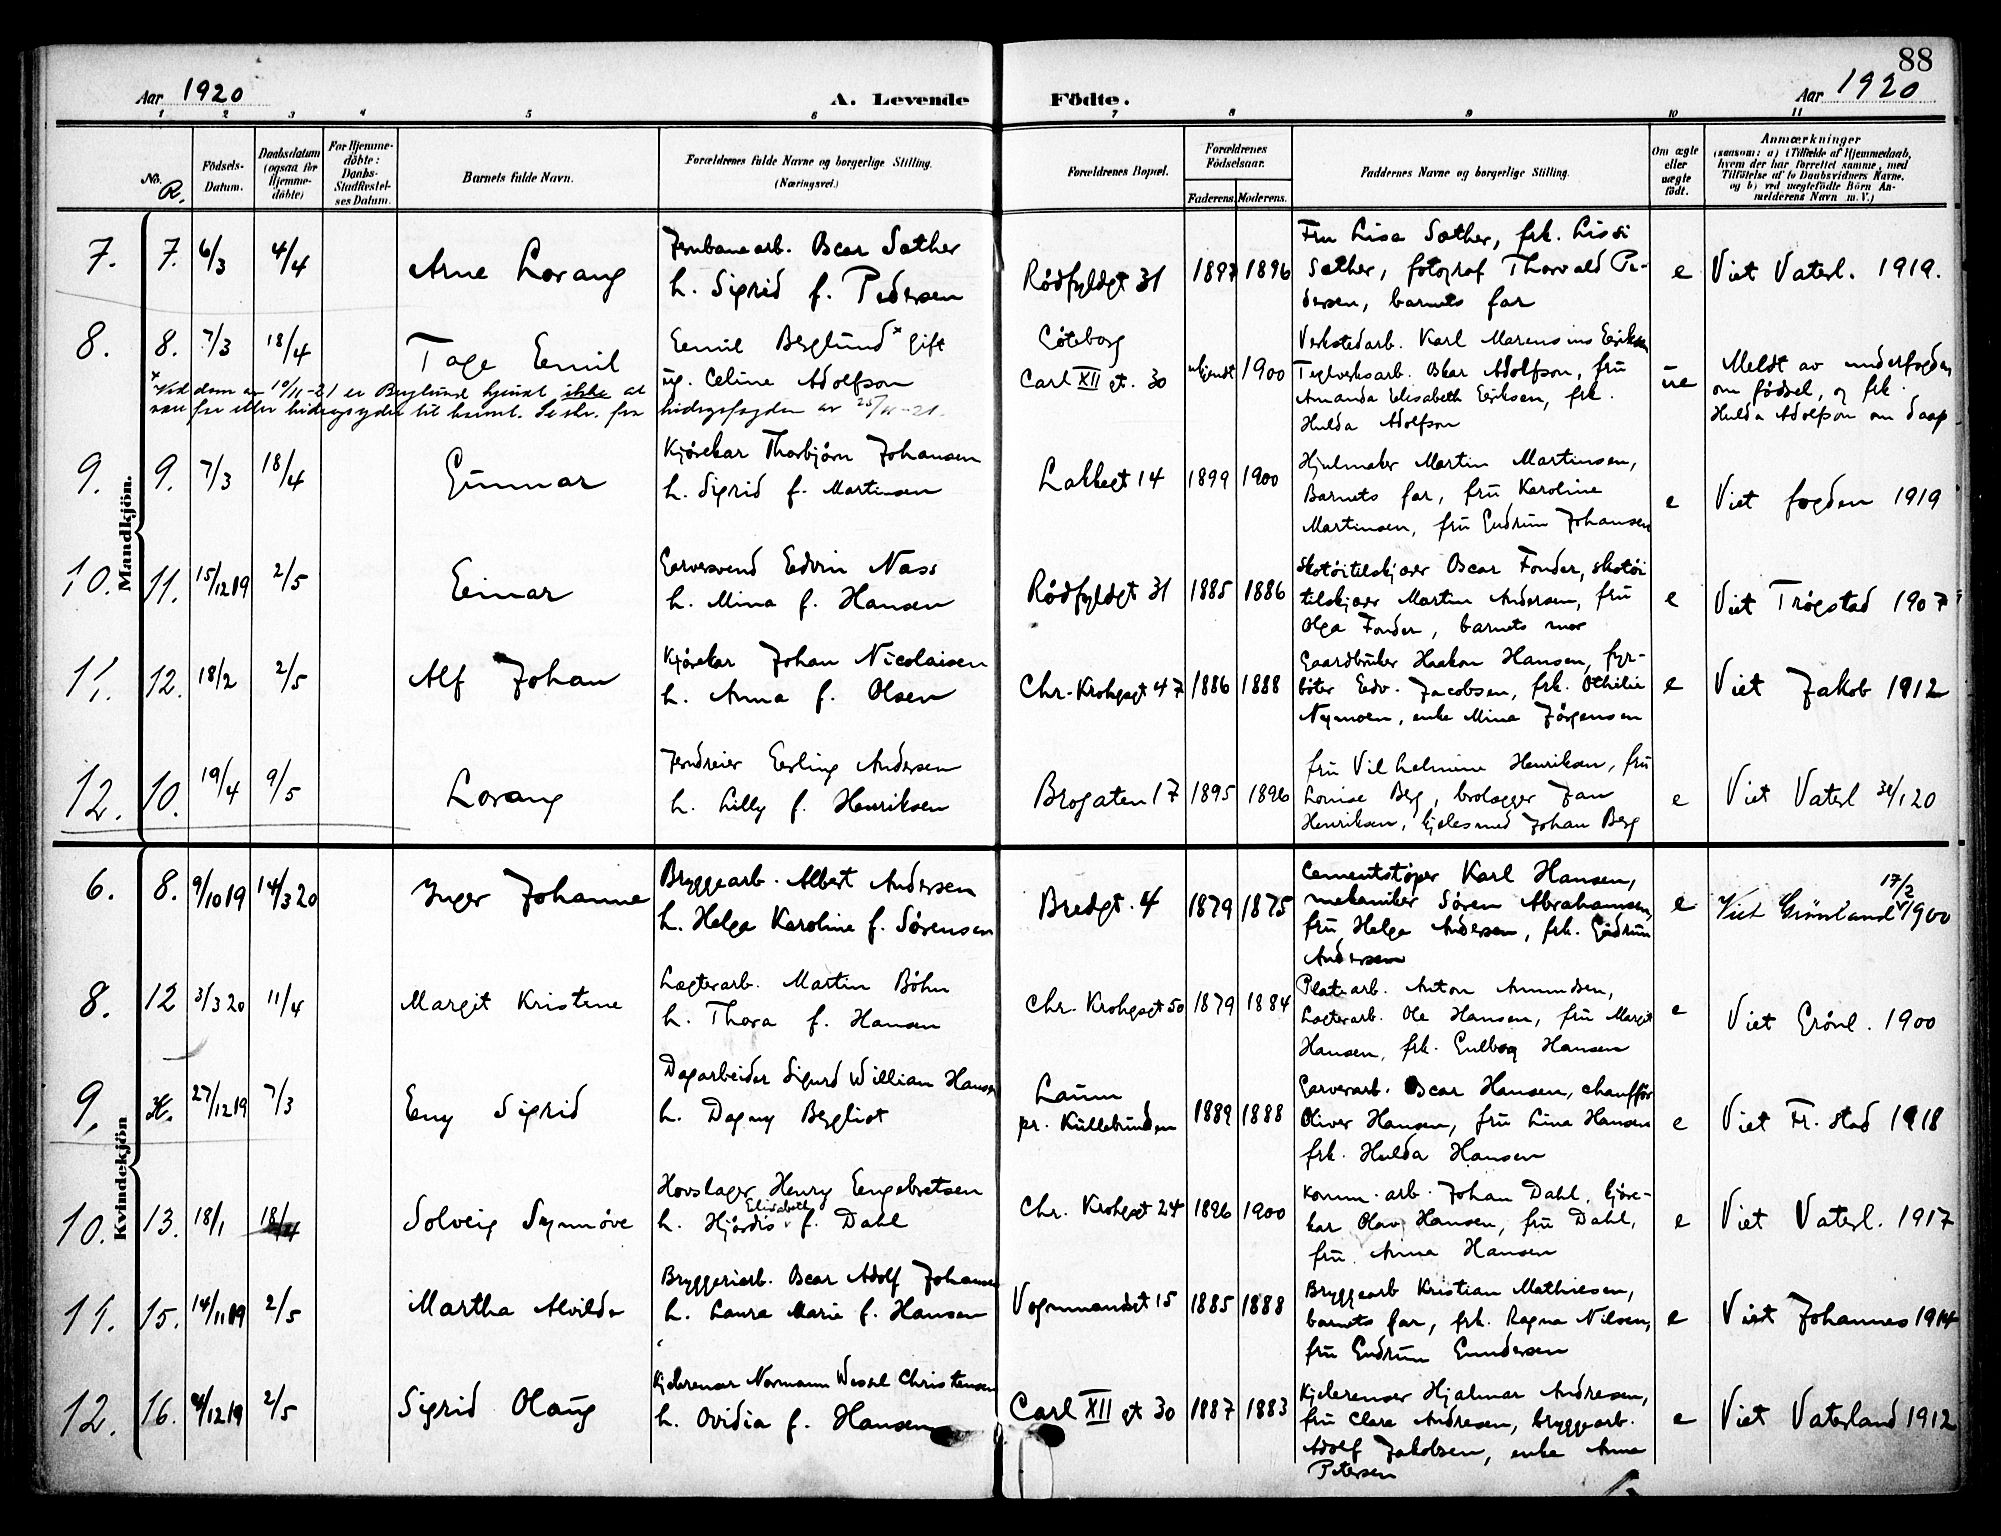 88
Aar 1920
A. Levende Födte.
Aar 1920
1 2 3 4 5 6 7 8 9 10 11
No. R.
Födsels-Datum.
Daabsdatum (ogsaa for Hjemmedöbte)
For Hjemmedöbte: Daabs-Stadfæstelses Datum.
Barnets fulde Navn.
Forældrenes fulde Navne og borgerlige Stilling. (Næringsvei.)
Forældrenes Bopæl.
Forældrenes Födselsaar.
Faderens. Moderens.
Faddernes Navne og borgerlige Stilling.
Om ægte eller uægte födt.
Anmærkninger
(saasom: a) i Tilfælde af Hjemmedaab, hvem der har forrettet samme, med Tilföielse af to Daabsvidners Navne, og b) ved uægtefödte Börn Anmelderens Navn m. V.)
Mandkjön.
7. 7. 6/3 4/4 Arne Lorang
Jernbanearb. Oscar Sæther
h. Sigrid f. Pedersen
Rødfyldgt 31 1897 1896
Fru Lisa Sæther, frk. Lissi
Sæther, fotograf Thorvald Pe-
dersen, barnets far
e Viet Vaterl. 1919.
8. 8. 7/3 18/4 Tage Emil
Emil Berglund x gift
ug. Celine Adolfson
Göteborg
Carl XII gt. 30 ukjendt 1900
Verkstedarb. Karl Marensius Eriksen
Teglverksarb. Oskar Adolfson, fru
Amanda Elisabeth Eriksen, frk.
Hulda Adolfson
ue Meldt av underfogden
om fødsel, og frk
Hulda Adolfson om daap
x Ved dom av 10/11-21 er Berglund kjendt ikke at
være far eller bidragsyder til barnet. Se skr. fra
bidragsfogden av 25/11-21.
9. 9. 7/3 18/4 Gunnar
Kjørekar Thorbjørn Johansen
h. Sigrid f. Martinsen
Lakkegt 14 1899 1900
Hjulmaker Martin Martinsen,
Barnets far, fru Karoline
Martinsen, fru Gudrun Johansen
e Viet fogden 1919
10. 11. 15/12 19 2/5 Einar
Garversvend Edvin Næss
h. Mina f. Hansen
Rødfyldgt 31 1885 1886
Skotøitilskjærer Oscar Fonder, skotøi
tilskjærer Martin Andersen, fru
Olga Fonder, barnets mor
e Viet Trøgstad 1907
11. 12. 18/2 2/5 Alf Johan
Kjørekar Johan Nicolaisen
h. Anna f. Olsen
Chr. Krohgsgt 47 1886 1888
Gaardbruker Haakon Hansen, fyr-
bøter Edv. Jacobsen, frk. Othilie
Nymoen, enke Mina Jørgensen
e Viet Jakob 1912
12. 10. 19/4 9/5 Lorang
Jerndreier Erling Andersen
h. Lilly f. Henriksen
Brogaten 17 1895 1896
fru Vilhelmine Henriksen, fru
Louise Berg, brolægger Jan
Henriksen, kjelesmed Johan Berg
e Viet Vaterl 31/1 20
Kvindekjön
6. 8. 9/10 19 14/3 20 Inger Johanne
Bryggearb. Albert Andersen
h. Helga Karoline f. Sørensen
Bredgt. 4 1879 1875
Cementstøper Karl Hansen,
mekaniker Søren Abrahamsen,
fru Helga Andersen, frk. Gudrun
Andersen
e Viet Grønland 17/2 1900
8. 12 3/3 20 11/4 Margit Kristine
Lagerarb. Martin Böhn
h. Thora f. Hansen
Chr. Krohgsgt 50 1879 1884
Platearb. Anton Amundsen,
Lagerarb. Ole Hansen, fru Margit
Hansen, frk. Gulborg Hansen
e Viet Grönl. 1900
9. 27/12 19 7/3 Eny Sigrid
Dagarbeider Sigurd William Hansen
h. Dagny Bergliot
Laum
pr. Kullebunden 1889 1888
Garverarb. Oscar Hansen, chaufför
Oliver Hansen, fru Lina Hansen
frk. Hulda Hansen
e Viet Fr. stad 1918
10. 13. 18/1 18/4 Solveig Synnöve
Hovslager Henry Engebretsen
h. Hjördis Elisabeth f. Dahl
Chr. Krohgsgt 24 1896 1900
Komm. arb. Johan Dahl, kjöre-
kar Olav Hansen, fru Dahl,
fru Anna Hansen
e Viet Vaterl. 1917
11. 15. 14/11 19 2/5 Martha Alvilde
Bryggeriarb. Oscar Adolf Johansen
h. Laura Marie f. Hansen
Vognmandsgt 15 1885 1888
Bryggearb Kristian Mathiesen,
barnets far, frk. Ragna Nilsen,
fru Gudrun Gundersen
e Viet Johannes 1914
12. 16. 4/12 19 2/5 Sigrid Olaug
Kjelerenser Normann Wessel Christensen
h. Ovidia f. Hansen
Carl XII gt 30 1887 1883
Kjelerenser Hjalmar Andresen,
fru Clara Andresen, bryggearb.
Adolf Jakobsen, enke Anna
Petersen
e Viet Vaterland 1912